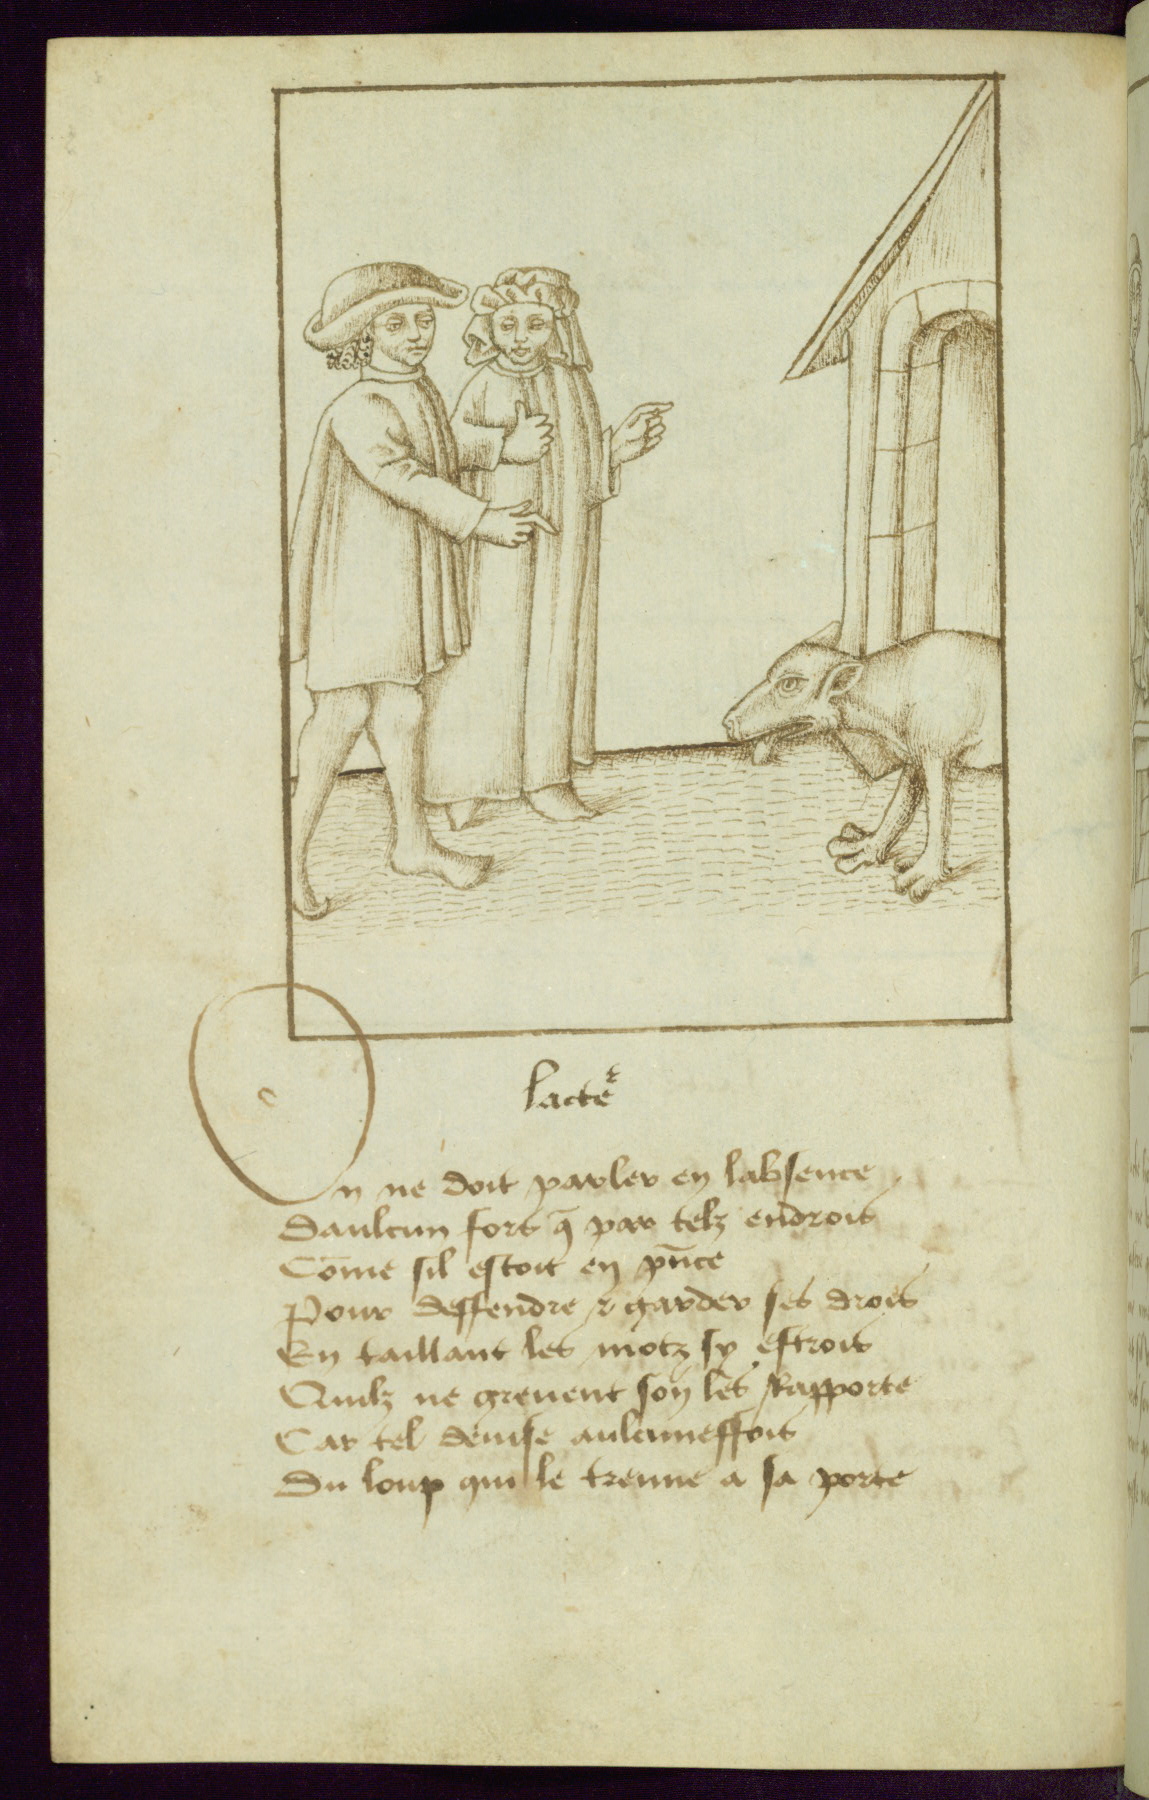 lacteᷣ
On ne doit parler en labsence
daulcun fors q̄ par telz endrois
Cōme sil estoit en pn̄ce
Pour deffendre ⁊ garder ses drois
En taillant les motz sy estrois
Quilz ne greuent son les Rapporte
Car tel deuise aulcuneffois
du loup qui le treuue a sa porte